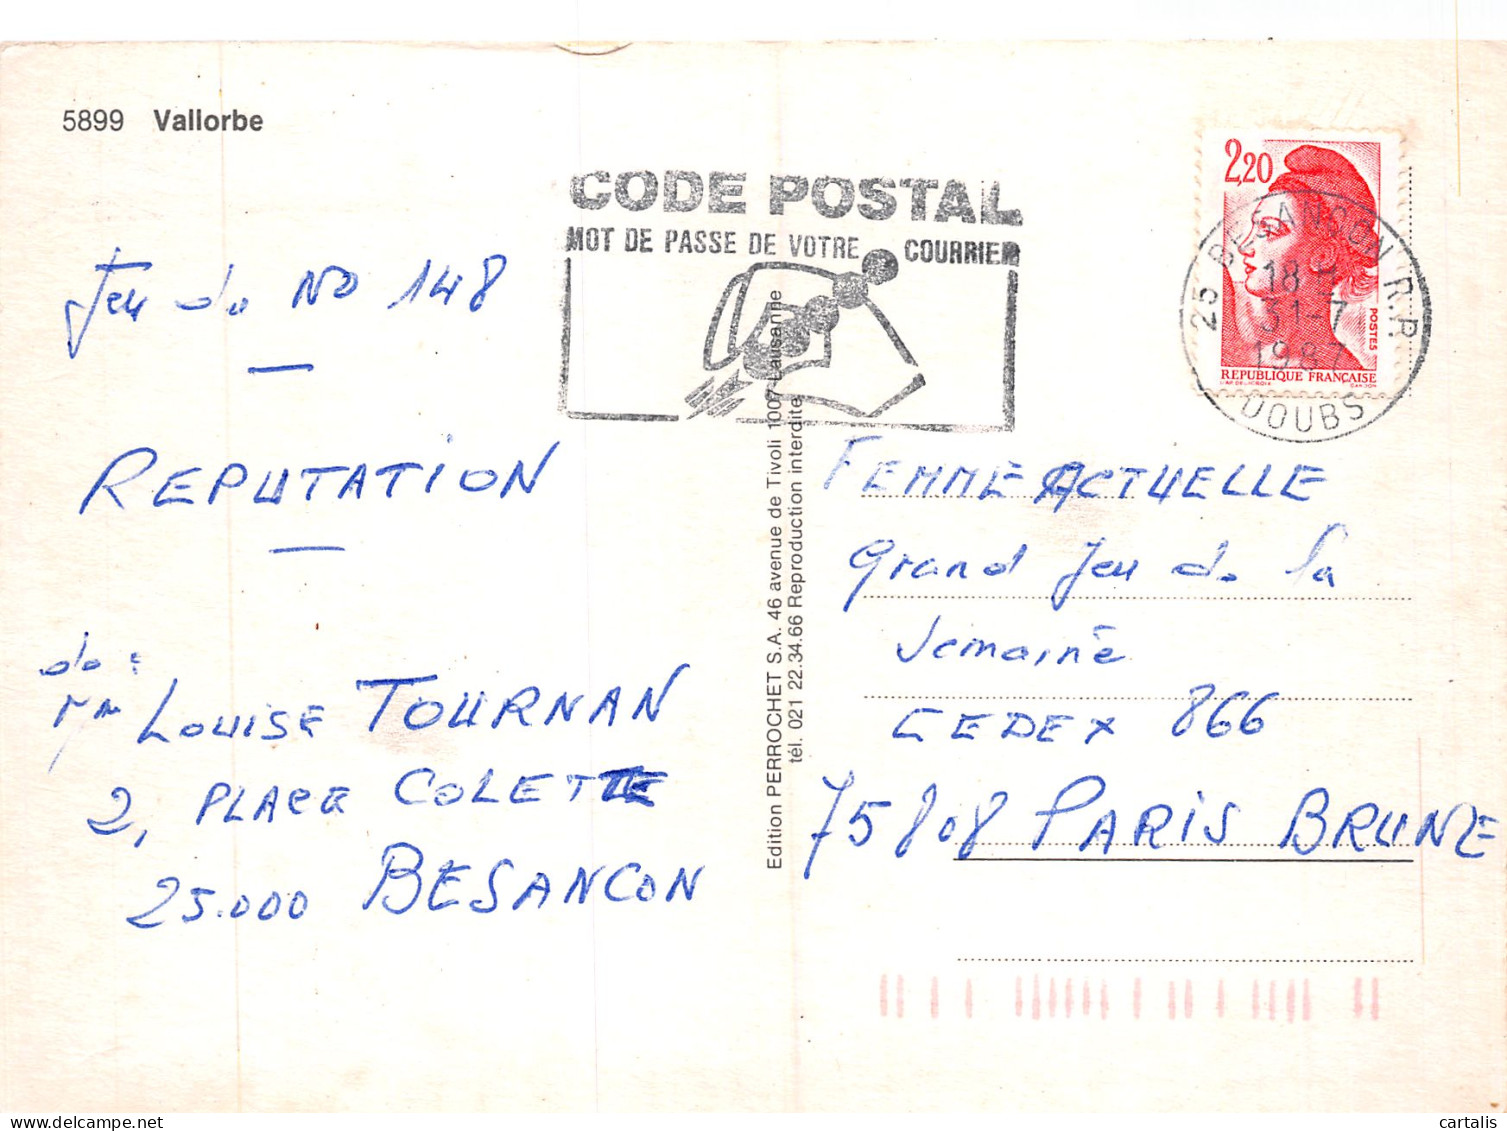 5899 Vallorbe
CODE POSTAL
MOT DE PASSE DE VOTRE COURRIER
2,20
POSTES
REPUBLIQUE FRANÇAISE
25 BESANSON R.P.
18 H
31-7
1987
DOUBS
Jeu du No 148
REPUTATION
de :
Mme LOUISE TOURNAN
2, PLACE COLETTE
25.000 BESANCON
Edition PERROCHET S.A. 46 avenue de Tivoli 1007 Lausanne
tél. 021 22.34.66 Reproduction interdite
FEMME ACTUELLE
Grand Jeu de la
Semaine
CEDEX 866
75808 PARIS BRUNE
delcampe.net
cartalis